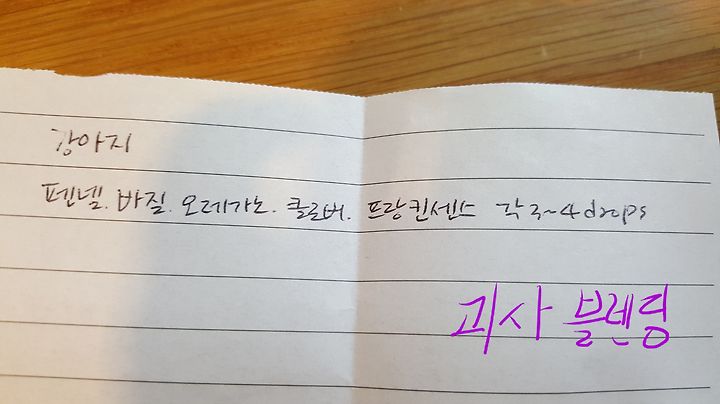 강아지
펜넬. 바질. 오레가노. 클로버. 프랑킨센스 각 3~4 drops
괴사 블렌딩